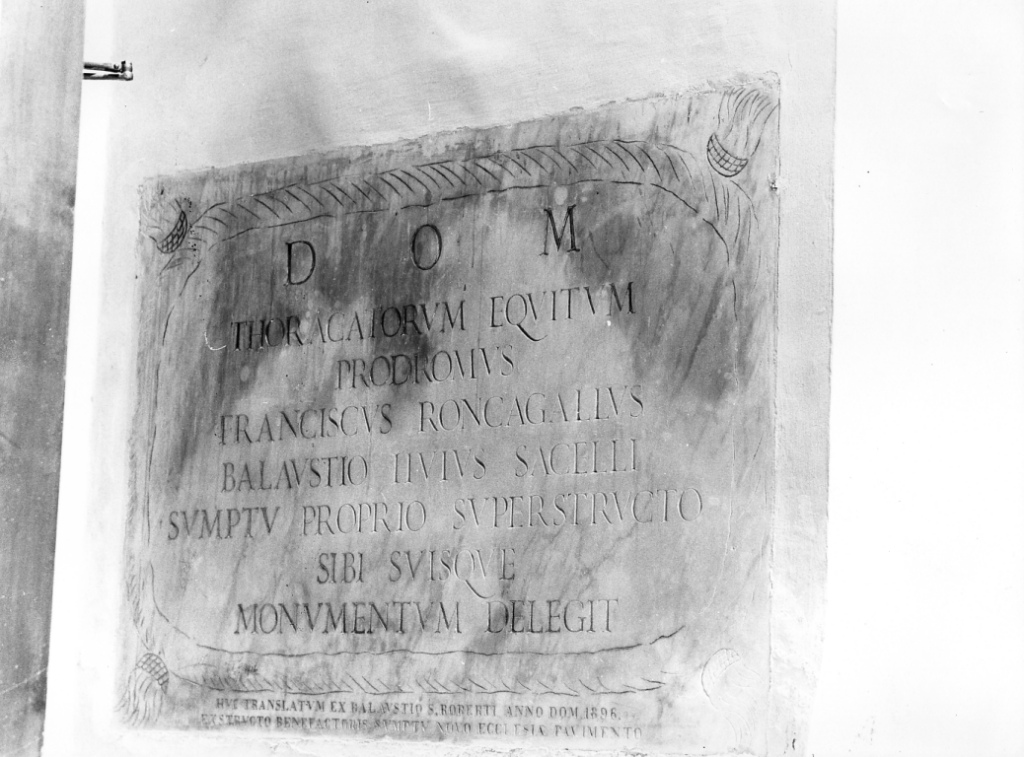 D O M
THORACATORVM EQVITVM
PRODROMVS
FRANCISCVS RONCAGALLVS
BALAVSTIO HVIVS SACELLI
SVMPTV PROPRIO SVPERSTRVCTO
SIBI SVISQVE
MONVMENTVM DELEGIT
HVC TRANSLATVM EX BALAVSTIO S. ROBERTI ANNO DOM. 1896.
EXSTRVCTO BENEFACTORIS SVMPTV NOVO ECCLESIA PAVIMENTO